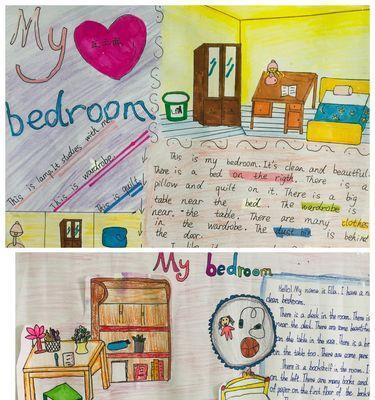 My
bedroom
This is lamp.It studies with me.
This is wardrobe.
This is quilt.
This is my bedroom. It's clean and beautiful.
There is a bed on the rigth. There is a
pillow and quilt on it. There is a big
table near the bed. The wardrobe is
near. the table. There are many clothes
in the wardrobe. The dust bin is behind
the door.
My bedroom
Hello! My name is Ella. I have a
clean bedroom.
There is a desk in the room. There is
near the desk. There are some beautiful
on the table in the vase. There is a
on the table too. There are some
There is a bookshelf in the room.
on the left. There are many books and
of paper on the first floor of the